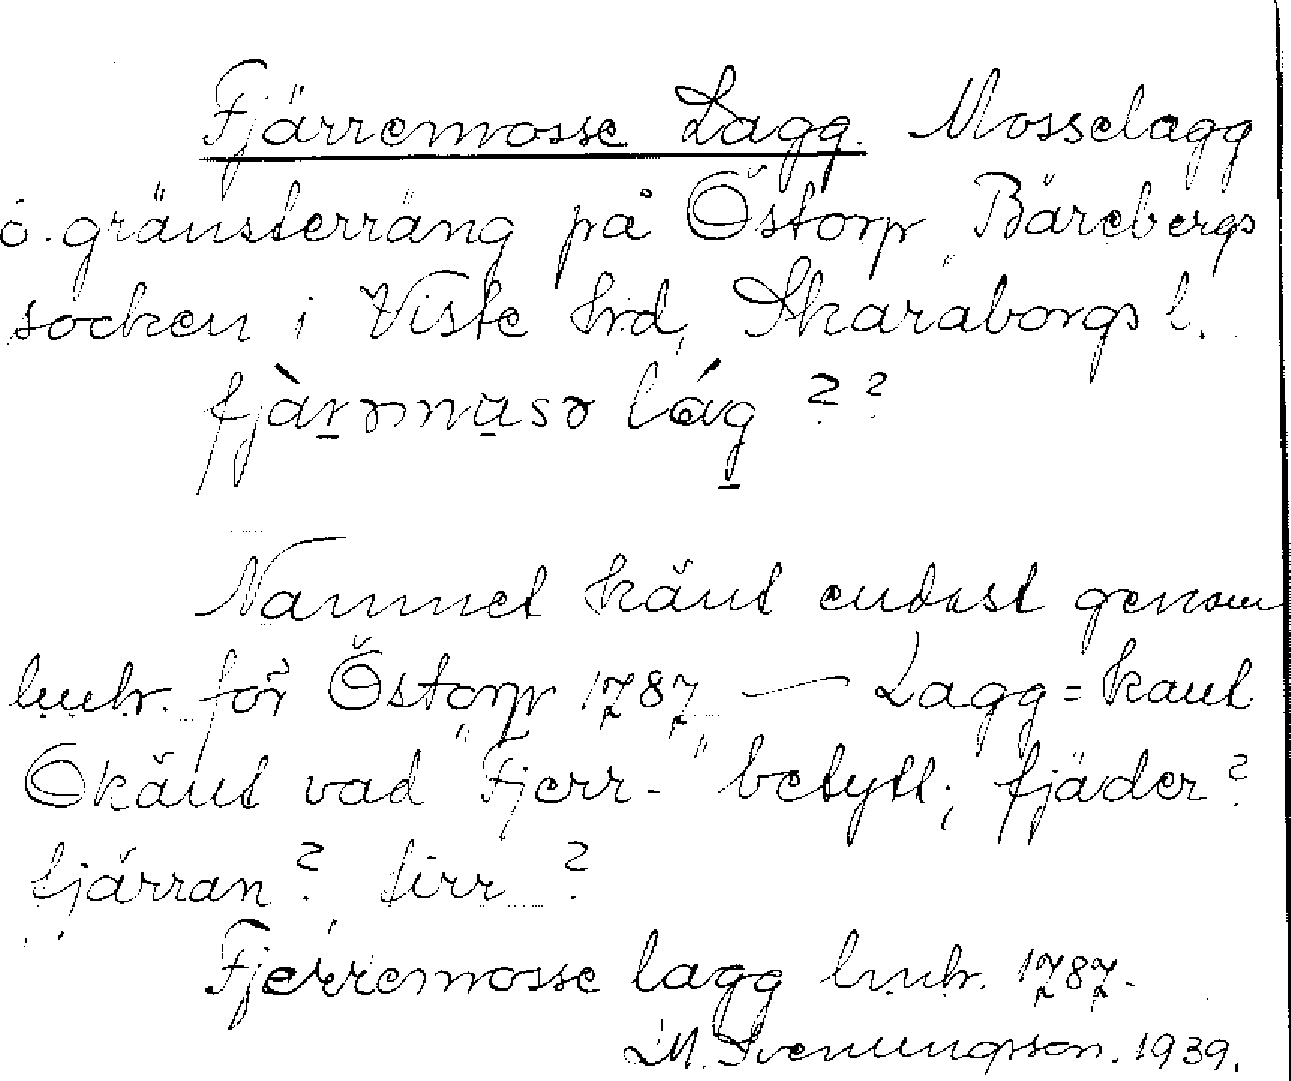 Fjärremosse Lagg. Mosselagg
ö. gränsterräng på Östorp, Bärebergs
socken i Viste hrd, Skaraborgs l.
fjàrəmusə lág ??
Namnet känt endast genom
lmhr. för Östorp 1787 — Lagg = kant
Okänt vad "Fjerr-" betytt; fjäder?
fjärran? firr ?
Fjerremosse lagg lmhr. 1787.
M. Svenungsson. 1939.